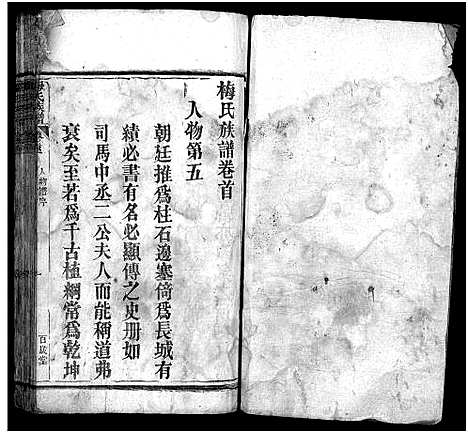 梅氏族譜卷首
人物第五
朝廷推爲柱石邊塞倚爲長城有
績必書有名必顯傳之史册如
司馬中丞二公夫人而能稱道弗
衰矣至若爲千古植綱常爲乾坤
百歲堂